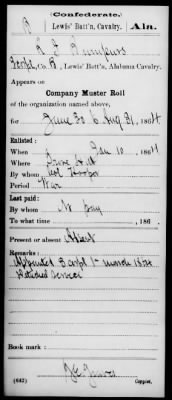 (Confederate.)
B 1 Lewis' Batt'n, Cavalry. Ala.
3 Corpl, Co. B, Lewis' Batt'n, Alabama Cavalry.
Appears on
Company Muster Roll
of the organization named above,
for June 30 to Aug 31, 1864
Enlisted:
When Jan 10, 1864
Where
By whom Col
Period War
Last paid:
By whom No pay
To what time , 186 .
Present or absent Absent
Remarks:
Appointed 3 Corpl 1st March 1864
Detached Service
Book mark:
(642) Copyist.